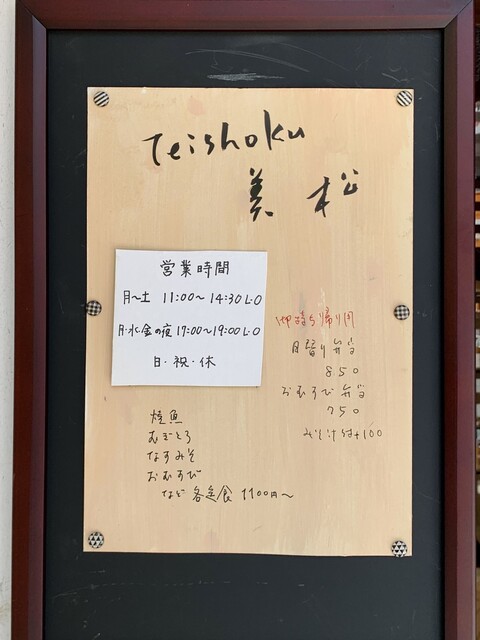 Teishoku
美松
営業時間
月〜土 11:00〜14:30 L.O
月・水・金の夜 17:00〜19:00 L.O
日・祝・休
御持ち帰り用
日替り弁当
850
おむすび弁当
750
みそ汁付+100
焼魚
むぎとろ
なすみそ
おむすび
など 各定食 1100円〜